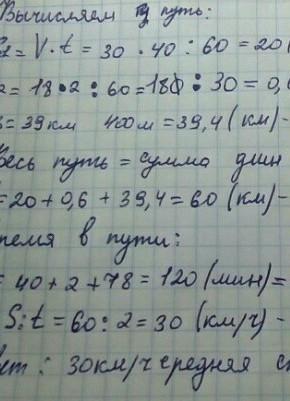 Вычисляем путь:
= V·t = 30 · 40 : 60 = 20(
= 18·2 : 60 = 180 : 30 = 0,
= 39 км 400 м = 39,4 (км) -
весь путь = сумма длин
= 20 + 0,6 + 39,4 = 60 (км) -
время в пути:
= 40 + 2 + 78 = 120 (мин) =
S:t = 60 : 2 = 30 (км/ч) -
: 30 км/ч средняя